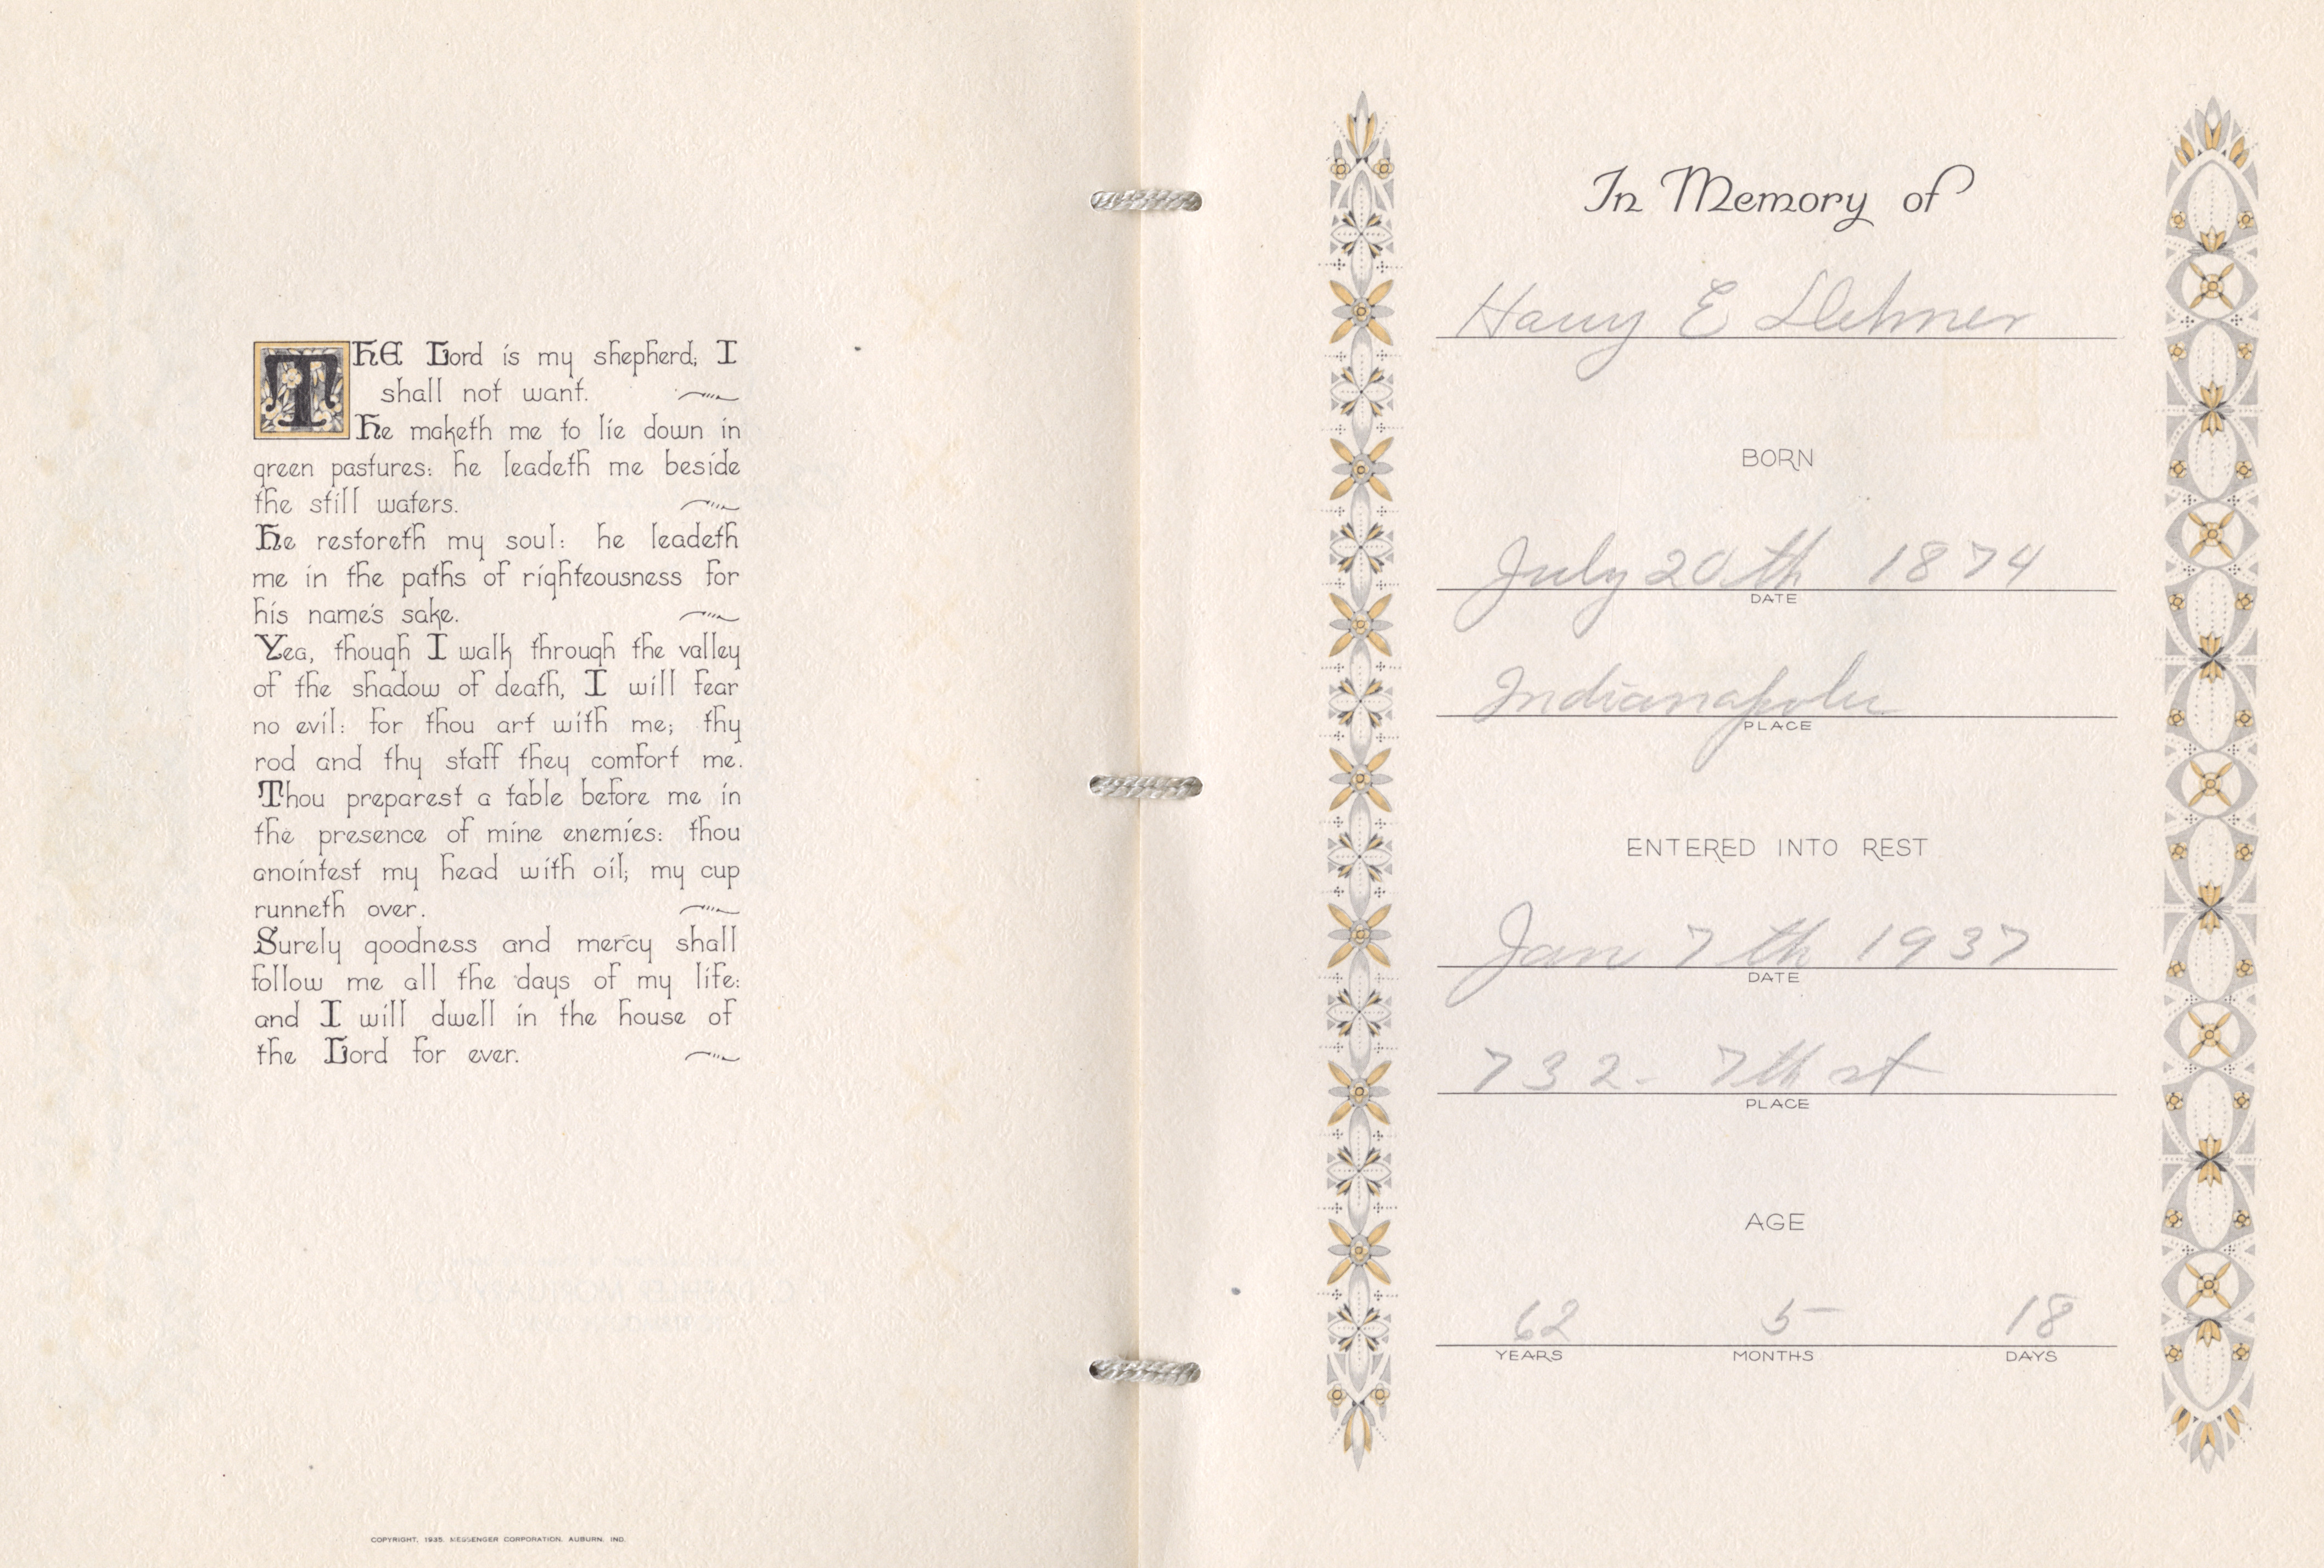 THE Lord is my shepherd; I
shall not want.
He maketh me to lie down in
green pastures: he leadeth me beside
the still waters.
He restoreth my soul: he leadeth
me in the paths of righteousness for
his name's sake.
Yea, though I walk through the valley
of the shadow of death, I will fear
no evil: for thou art with me; thy
rod and thy staff they comfort me.
Thou preparest a table before me in
the presence of mine enemies: thou
anointest my head with oil; my cup
runneth over.
Surely goodness and mercy shall
follow me all the days of my life:
and I will dwell in the house of
the Lord for ever.
COPYRIGHT, 1935, MESSENGER CORPORATION, AUBURN, IND.
In Memory of
Harry E
BORN
July 20th 1874
DATE
Indianapolis
PLACE
ENTERED INTO REST
Jan 7th 1937
DATE
732- 7th st
PLACE
AGE
62 5 18
YEARS MONTHS DAYS